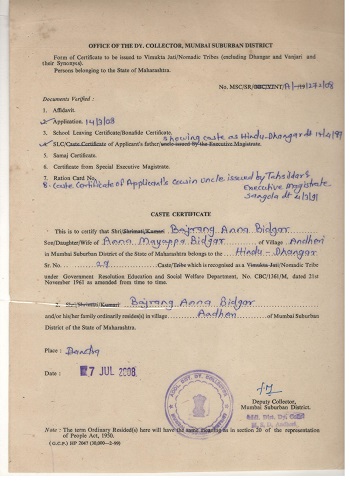 OFFICE OF THE DY. COLLECTOR, MUMBAI SUBURBAN DISTRICT
Form of Certificate to be issued to Vimukta Jati/Nomadic Tribes (excluding Dhangar and Vanjari and
their Synonyes).
Persons belonging to the State of Maharashtra.
No. MSC/SR/
Documents Verified :
1. Affidavit.
2. Application. 14/3/08
3. School Leaving Certificate/Bonafide Certificate.
showing caste as Hindu-Dhangar dt
4. SLC/Caste Certificate of Applicant's father/uncle issued by the Executive Magistrate.
5. Samaj Certificate.
6. Certificate from Special Executive Magistrate.
7. Ration Card No.
8. Caste Certificate of Applicant's cousin uncle issued by Tahsildar &
Executive Magistrate
Sangola dt
CASTE CERTIFICATE
This is to certify that Shri/Shrimati/Kumari Bajrang Anna Bidgar
Son/Daughter/Wife of Anna Mayappa Bidgar of Village Andheri
in Mumbai Suburban District of the State of Maharashtra belongs to the Hindu - Dhangar
Sr. No. 29 Caste/Tribe which is recognised as a Vimukta Jati/Nomadic Tribe
under Government Resolution Education and Social Welfare Department, No. CBC/1361/M, dated 21st
November 1961 as amended from time to time.
2. Shri/Shrimati/Kumari Bajrang Anna Bidgar
and/or his/her family ordinarily reside(s) in village Andheri of Mumbai Suburban
District of the State of Maharashtra.
Place : Bandra
Date : 7 JUL 2008
Deputy Collector,
Mumbai Suburban District.
Note : The term Ordinary Resided(s) here will have the same meaning as in section 20 of the representation
of People Act, 1950.